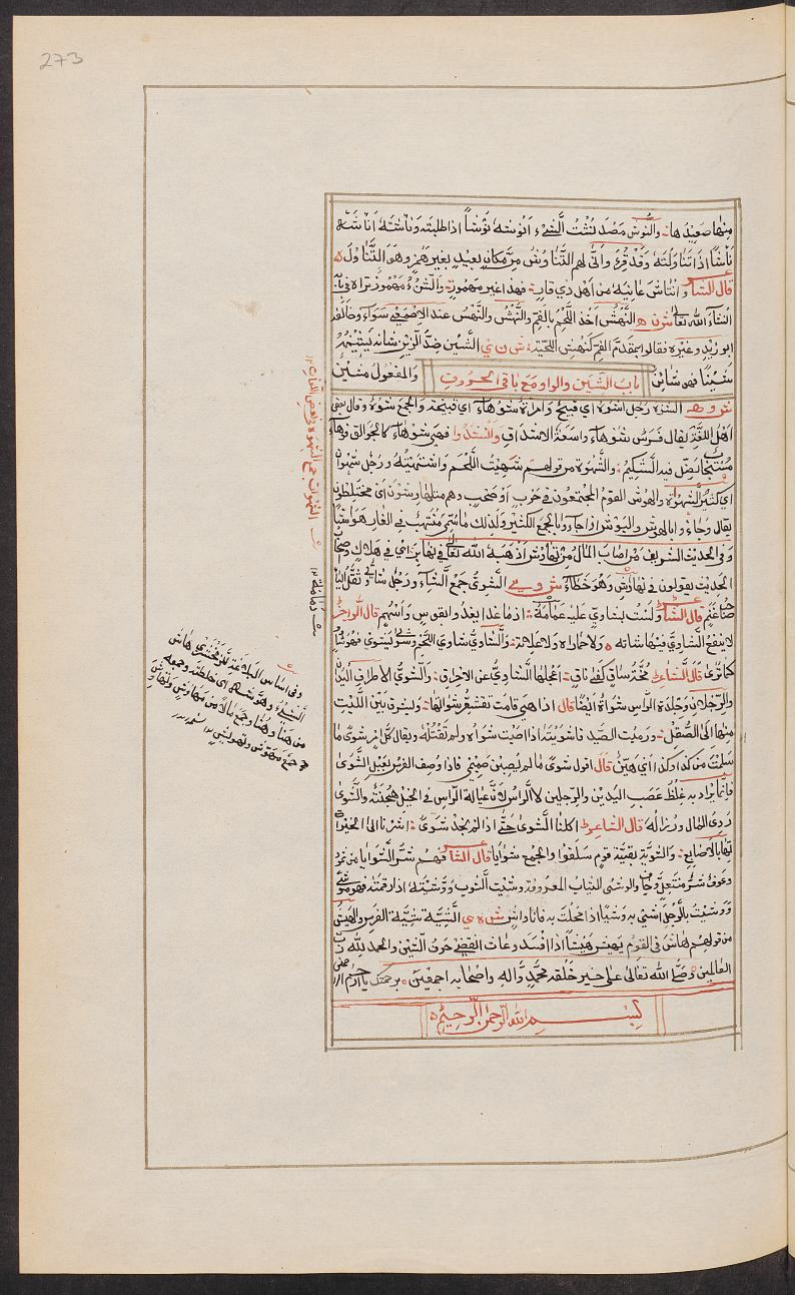 273
منها صعيدها والنوش مصدر نشت الشيء انوشه نوشاً اذا طلبته وناشته اناشه
نأشاً اذا تناولته وقد قرئ وانى لهم التناوش من مكان بعيد بغير همز وهو التناول
قال الشاعر وانتاش عانيه من اهل ذي قار فهذا غير مهموز والنشء مهموز تراه في باب
انشاء الله تعالى ش ن ه النهش اخذ اللحم بالفم والنهش والنهس عند الاصمعي سواء وخالفه
ابو زيد وغيره فقالوا بمقدم الفم كنهش الحية ش ن ي الشين ضد الزين شانه يشينه
شينا فهو شائن والمفعول مشين
باب الشين والواو مع باقي الحروف
ش و ه الشوه رجل اشوه اي قبيح وامراة شوهاء اي قبيحة والجمع شوه وقال بعض
اهل اللغة يقال فرس شوهاء واسعة الاشداق فهي شوهاء كالجوالق فوها
مستجاف يضل فيه الشكيم والشهوة من قولهم شهيت اللحم واشتهيته ورجل شهوان
اي كثير الشهوة والهوش القوم المجتمعون في حرب او صخب وهم متهاوشون اي مختلطون
يقال وجاء بالهوش والبوش اذا جاء بالجمع الكثير ولذلك ما سمي ما ينتهب في الغار هواشا
وفي الحديث الشريف من اصاب المال من تهاوش اذهبه الله تعالى في نهابر اي في هلاك واصحاب
الحديث يقولون في نهاوش وهو خطاء ش و ي الشوي جمع الشاء ورجل شائي وثقل اليا
صاحب غنم قال الشاعر ولست بشاوي عليه عمامة اذا ما غدا يغدو بقوس واسهم قال الراجز
لا ينفع الشاوي فيها شاته ولا حماراه ولا علاته والشاوي شاوي اللحم شوى يشوي فهو شاو
كما ترى قال الشاعر
والرجلان وجلدة الراس شواة ايضا قال اذا هي قامت تقشعر شواتها ويشرق بين الليت
منها الى الصقل ورميت الصيد فاشويته اذا اصبت شواه ولم تقتله ويقال كل امر شوى ما
سلمت من كذا وكذا اي هين قال اقول شوى ما لم يصبن صميمي فاذا وصف الفرس بعبل الشوى
فانما يراد به غلظ عصب اليدين والرجلين لا الراس لان عبالة الراس في الخيل هجنة والشوى
ردي المال ورذاله قال الشاعر اكلنا الشوى حتى اذا لم نجد شوى اشرنا الى خيراتها
بالاصابع والشوية بقية قوم سلفوا والجمع شوايا قال الشاعر فهم شر الشوايا من ثمود
وعوف شر منتعل وحاف والوشي الثياب المعروفة وشيت الثوب اوشيته اذا رقمته فهو موشي
ووشيت بالرجل اشي به وشيا اذا محلت به فانا واش ش ه ي الشية شية الفرس والهيش
من قولهم هاش في القوم يهيش هيشا اذا افسد وعاث انقضى حرف الشين والحمد لله رب
العالمين وصلى الله تعالى على خير خلقه محمد واله واصحابه اجمعين برحمتك يا ارحم الراحمين
بسم الله الرحمن الرحيم
وفي اساس البلاغة للزمخشري هاش
الشيء وهوشه اي خلطه وجمعه
من هنا وهنا وجمع مالا من مهاوش وتهاوش